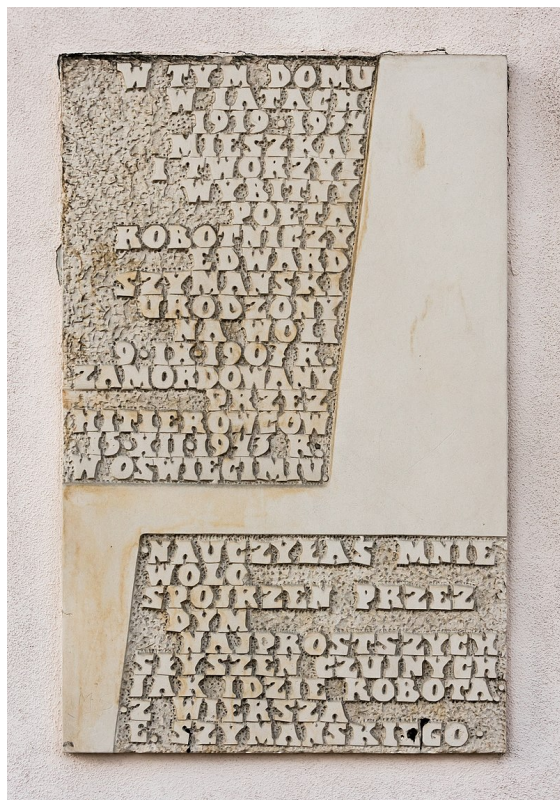 W TYM DOMU
W LATACH
1919-1934
MIESZKAŁ
I TWORZYŁ
WYBITNY
POETA
ROBOTNICZY
EDWARD
SZYMAŃSKI
URODZONY
NA WOLI
9·IX·1907 R.
ZAMORDOWANY
PRZEZ
HITLEROWCÓW
15·XII·1943 R.
W OŚWIĘCIMIU
NAUCZYŁAŚ MNIE
WOLO
SPOJRZEŃ PRZEZ
DYM
NAJPROSTSZYCH
SŁYSZEŃ CZUJNYCH
JAK IDZIE ROBOTA·
Z WIERSZA
E. SZYMAŃSKIEGO